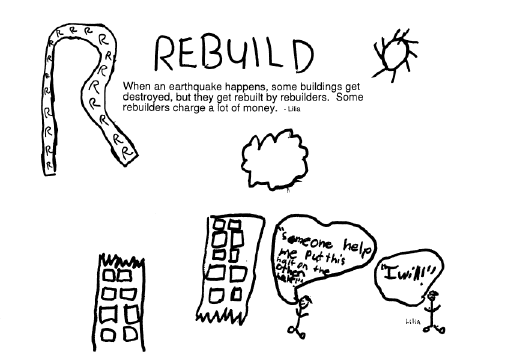 REBUILD
When an earthquake happens, some buildings get
destroyed, but they get rebuilt by rebuilders. Some
rebuilders charge a lot of money. - Lilia
R R R R R R R R R R R R R R R R
"someone help
me put this
half on the
other
half!"
"I will!"
Lilia